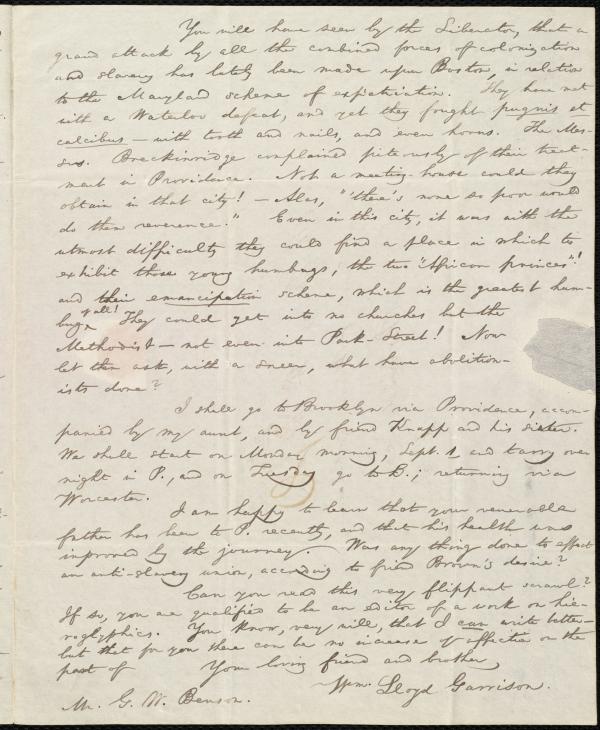 You will have seen by the Liberator, that a
grand attack by all the combined forces of colonization
and slavery has lately been made upon Boston, in relation
to the Maryland scheme of expatriation. They have met
with a Waterloo defeat, and yet they fought pugnis et
calcibus — with tooth and nails, and even horns. The Mes-
srs. Breckinridge complained piteously of their treat-
ment in Providence. Not a meeting-house could they
obtain in that city! — Alas, "there's none so poor would
do them reverence." Even in this city, it was with the
utmost difficulty they could find a place in which to
exhibit those young humbugs, the two "African princes"!
and their emancipation scheme, which is the greatest hum-
bug of all! They could get into no churches but the
Methodist — not even into Park-Street! Now
let them ask, with a sneer, what have abolition-
ists done?
I shall go to Brooklyn via Providence, accom-
panied by my aunt, and by friend Knapp and his sister.
We shall start on Monday morning, Sept. 1, and tarry over
night in P., and on Tuesday go to B.; returning via
Worcester.
I am happy to learn that your venerable
father has been to P. recently, and that his health was
improved by the journey. Was any thing done to effect
an anti-slavery union, according to friend Brown's desire?
Can you read this very flippant scrawl?
If so, you are qualified to be an editor of a work on hie-
roglyphics. You know, very well, that I can write better—
but that for you there can be no increase of affection on the
part of Your loving friend and brother,
Wm. Lloyd Garrison.
Mr. G. W. Benson.